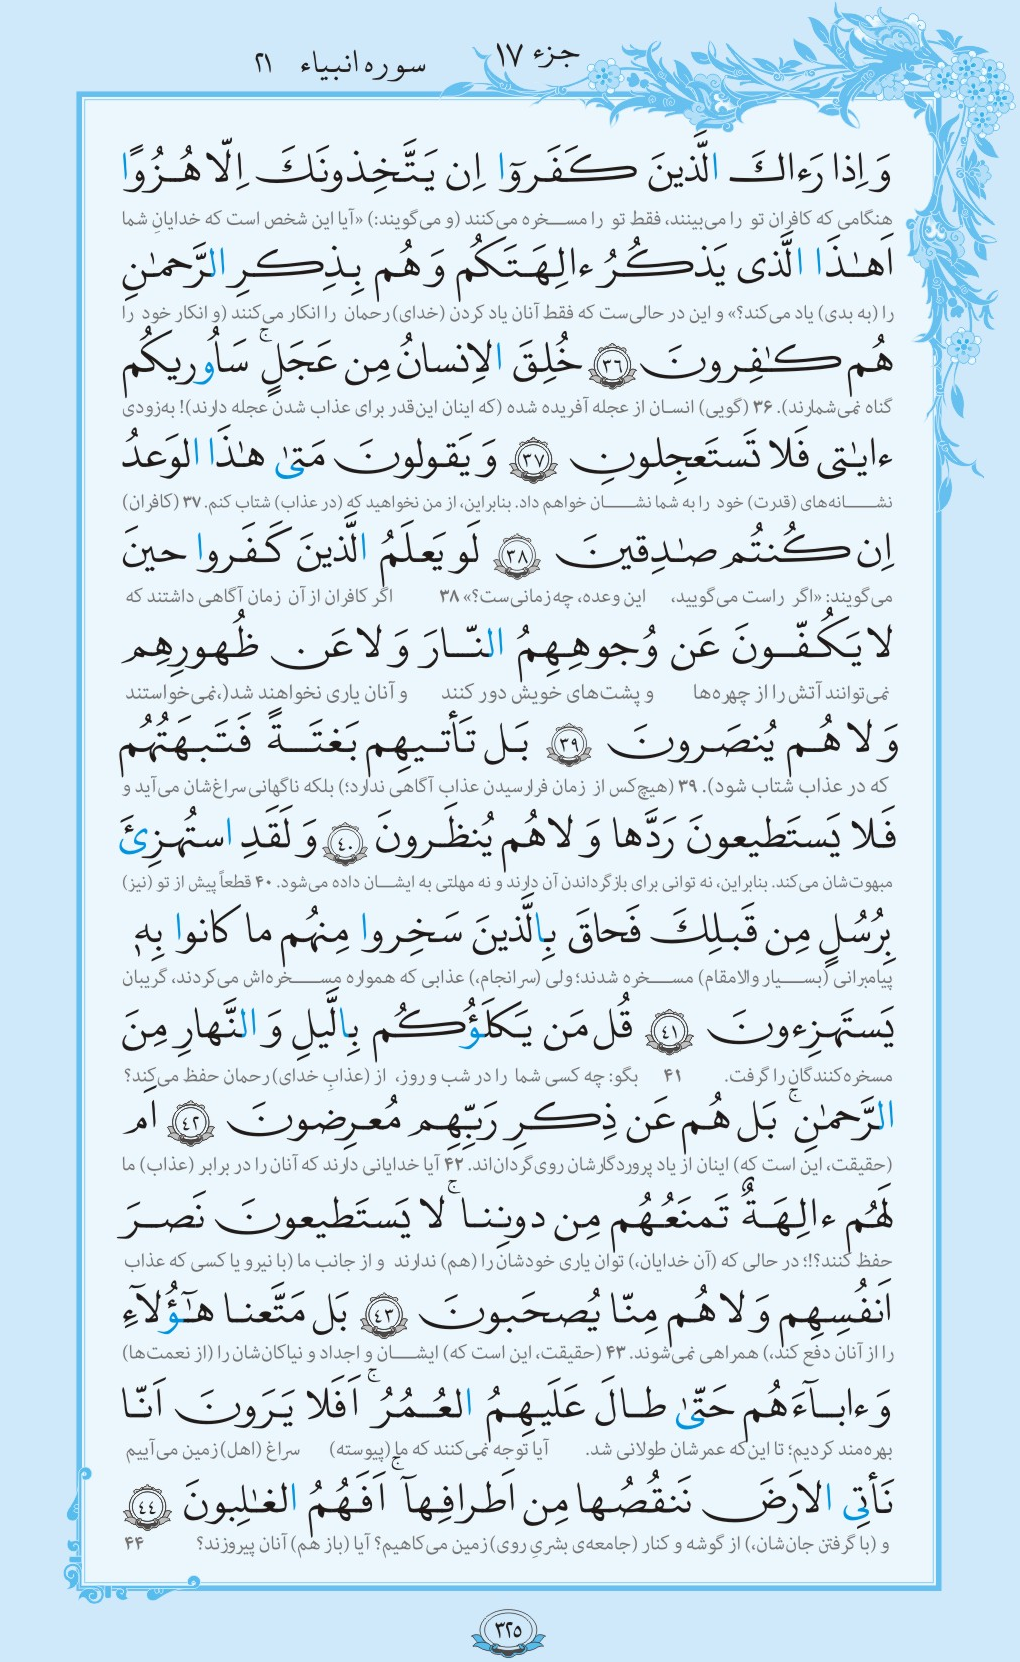 جزء ۱۷
سوره انبیاء ۲۱
وَ اِذا رَءاكَ الَّذينَ كَفَروٓا اِن يَتَّخِذونَكَ اِلّا هُزُوًا
هنگامی که کافران تو را می‌بینند، فقط تو را مسخره می‌کنند (و می‌گویند:) «آیا این شخص است که خدایانِ شما
اَهٰذَا الَّذی يَذكُرُ ءالِهَتَكُم وَ هُم بِذِكرِ الرَّحمٰنِ
را (به بدی) یاد می‌کند؟» و این در حالی‌ست که فقط آنان یاد کردن (خدای) رحمان را انکار می‌کنند (و انکار خود را
هُم كٰفِرونَ ﴿٣٦﴾ خُلِقَ الاِنسانُ مِن عَجَلٍ ۚ سَاُوريكُم
گناه نمی‌شمارند). ۳۶ (گویی) انسان از عجله آفریده شده (که اینان این‌قدر برای عذاب شدن عجله دارند)! به‌زودی
ءايٰتی فَلا تَستَعجِلونِ ﴿٣٧﴾ وَ يَقولونَ مَتىٰ هٰذَا الوَعدُ
نشانه‌های (قدرت) خود را به شما نشان خواهم داد. بنابراین، از من نخواهید که (در عذاب) شتاب کنم. ۳۷ (کافران)
اِن كُنتُم صٰدِقينَ ﴿٣٨﴾ لَو يَعلَمُ الَّذينَ كَفَروا حينَ
می‌گویند: «اگر راست می‌گویید، این وعده، چه زمانی‌ست؟» ۳۸ اگر کافران از آن زمان آگاهی داشتند که
لا يَكُفّونَ عَن وُجوهِهِمُ النّارَ وَ لا عَن ظُهورِهِم
نمی‌توانند آتش را از چهره‌ها و پشت‌های خویش دور کنند و آنان یاری نخواهند شد(، نمی‌خواستند
وَ لا هُم يُنصَرونَ ﴿٣٩﴾ بَل تَأتيهِم بَغتَةً فَتَبهَتُهُم
که در عذاب شتاب شود). ۳۹ (هیچ‌کس از زمان فرارسیدن عذاب آگاهی ندارد؛) بلکه ناگهانی سراغ‌شان می‌آید و
فَلا يَستَطيعونَ رَدَّها وَ لا هُم يُنظَرونَ ﴿٤٠﴾ وَ لَقَدِ استُهزِئَ
مبهوت‌شان می‌کند. بنابراین، نه توانی برای بازگرداندن آن دارند و نه مهلتی به ایشان داده می‌شود. ۴۰ قطعاً پیش از تو (نیز)
بِرُسُلٍ مِن قَبلِكَ فَحاقَ بِالَّذينَ سَخِروا مِنهُم ما كانوا بِهٖ
پیامبرانی (بسیار والامقام) مسخره شدند؛ ولی (سرانجام،) عذابی که همواره مسخره‌اش می‌کردند، گریبان
يَستَهزِءونَ ﴿٤١﴾ قُل مَن يَكلَؤُكُم بِالَّيلِ وَ النَّهارِ مِنَ
مسخره‌کنندگان را گرفت. ۴۱ بگو: چه کسی شما را در شب و روز، از (عذابِ خدای) رحمان حفظ می‌کند؟
الرَّحمٰنِ ۚ بَل هُم عَن ذِكرِ رَبِّهِم مُعرِضونَ ﴿٤٢﴾ اَم
(حقیقت، این است که) اینان از یاد پروردگارشان روی‌گردان‌اند. ۴۲ آیا خدایانی دارند که آنان را در برابر (عذاب) ما
لَهُم ءالِهَةٌ تَمنَعُهُم مِن دونِنا ۚ لا يَستَطيعونَ نَصرَ
حفظ کنند؟!؛ در حالی که (آن خدایان،) توان یاری خودشان را (هم) ندارند و از جانب ما (با نیرو یا کسی که عذاب
اَنفُسِهِم وَ لا هُم مِنّا يُصحَبونَ ﴿٤٣﴾ بَل مَتَّعنا هٰٓؤُلآءِ
را از آنان دفع کند،) همراهی نمی‌شوند. ۴۳ (حقیقت، این است که) ایشان و اجداد و نیاکان‌شان را (از نعمت‌ها)
وَ ءابآءَهُم حَتّىٰ طالَ عَلَيهِمُ العُمُرُ ۚ اَفَلا يَرَونَ اَنّا
بهره‌مند کردیم؛ تا این‌که عمرشان طولانی شد. آیا توجه نمی‌کنند که ما (پیوسته) سراغ (اهل) زمین می‌آییم
نَأتِی الاَرضَ نَنقُصُها مِن اَطرافِهآ ۚ اَفَهُمُ الغٰلِبونَ ﴿٤٤﴾
و (با گرفتن جان‌شان،) از گوشه و کنار (جامعه‌ی بشریِ روی) زمین می‌کاهیم؟ آیا (باز هم) آنان پیروزند؟ ۴۴
۳۲۵